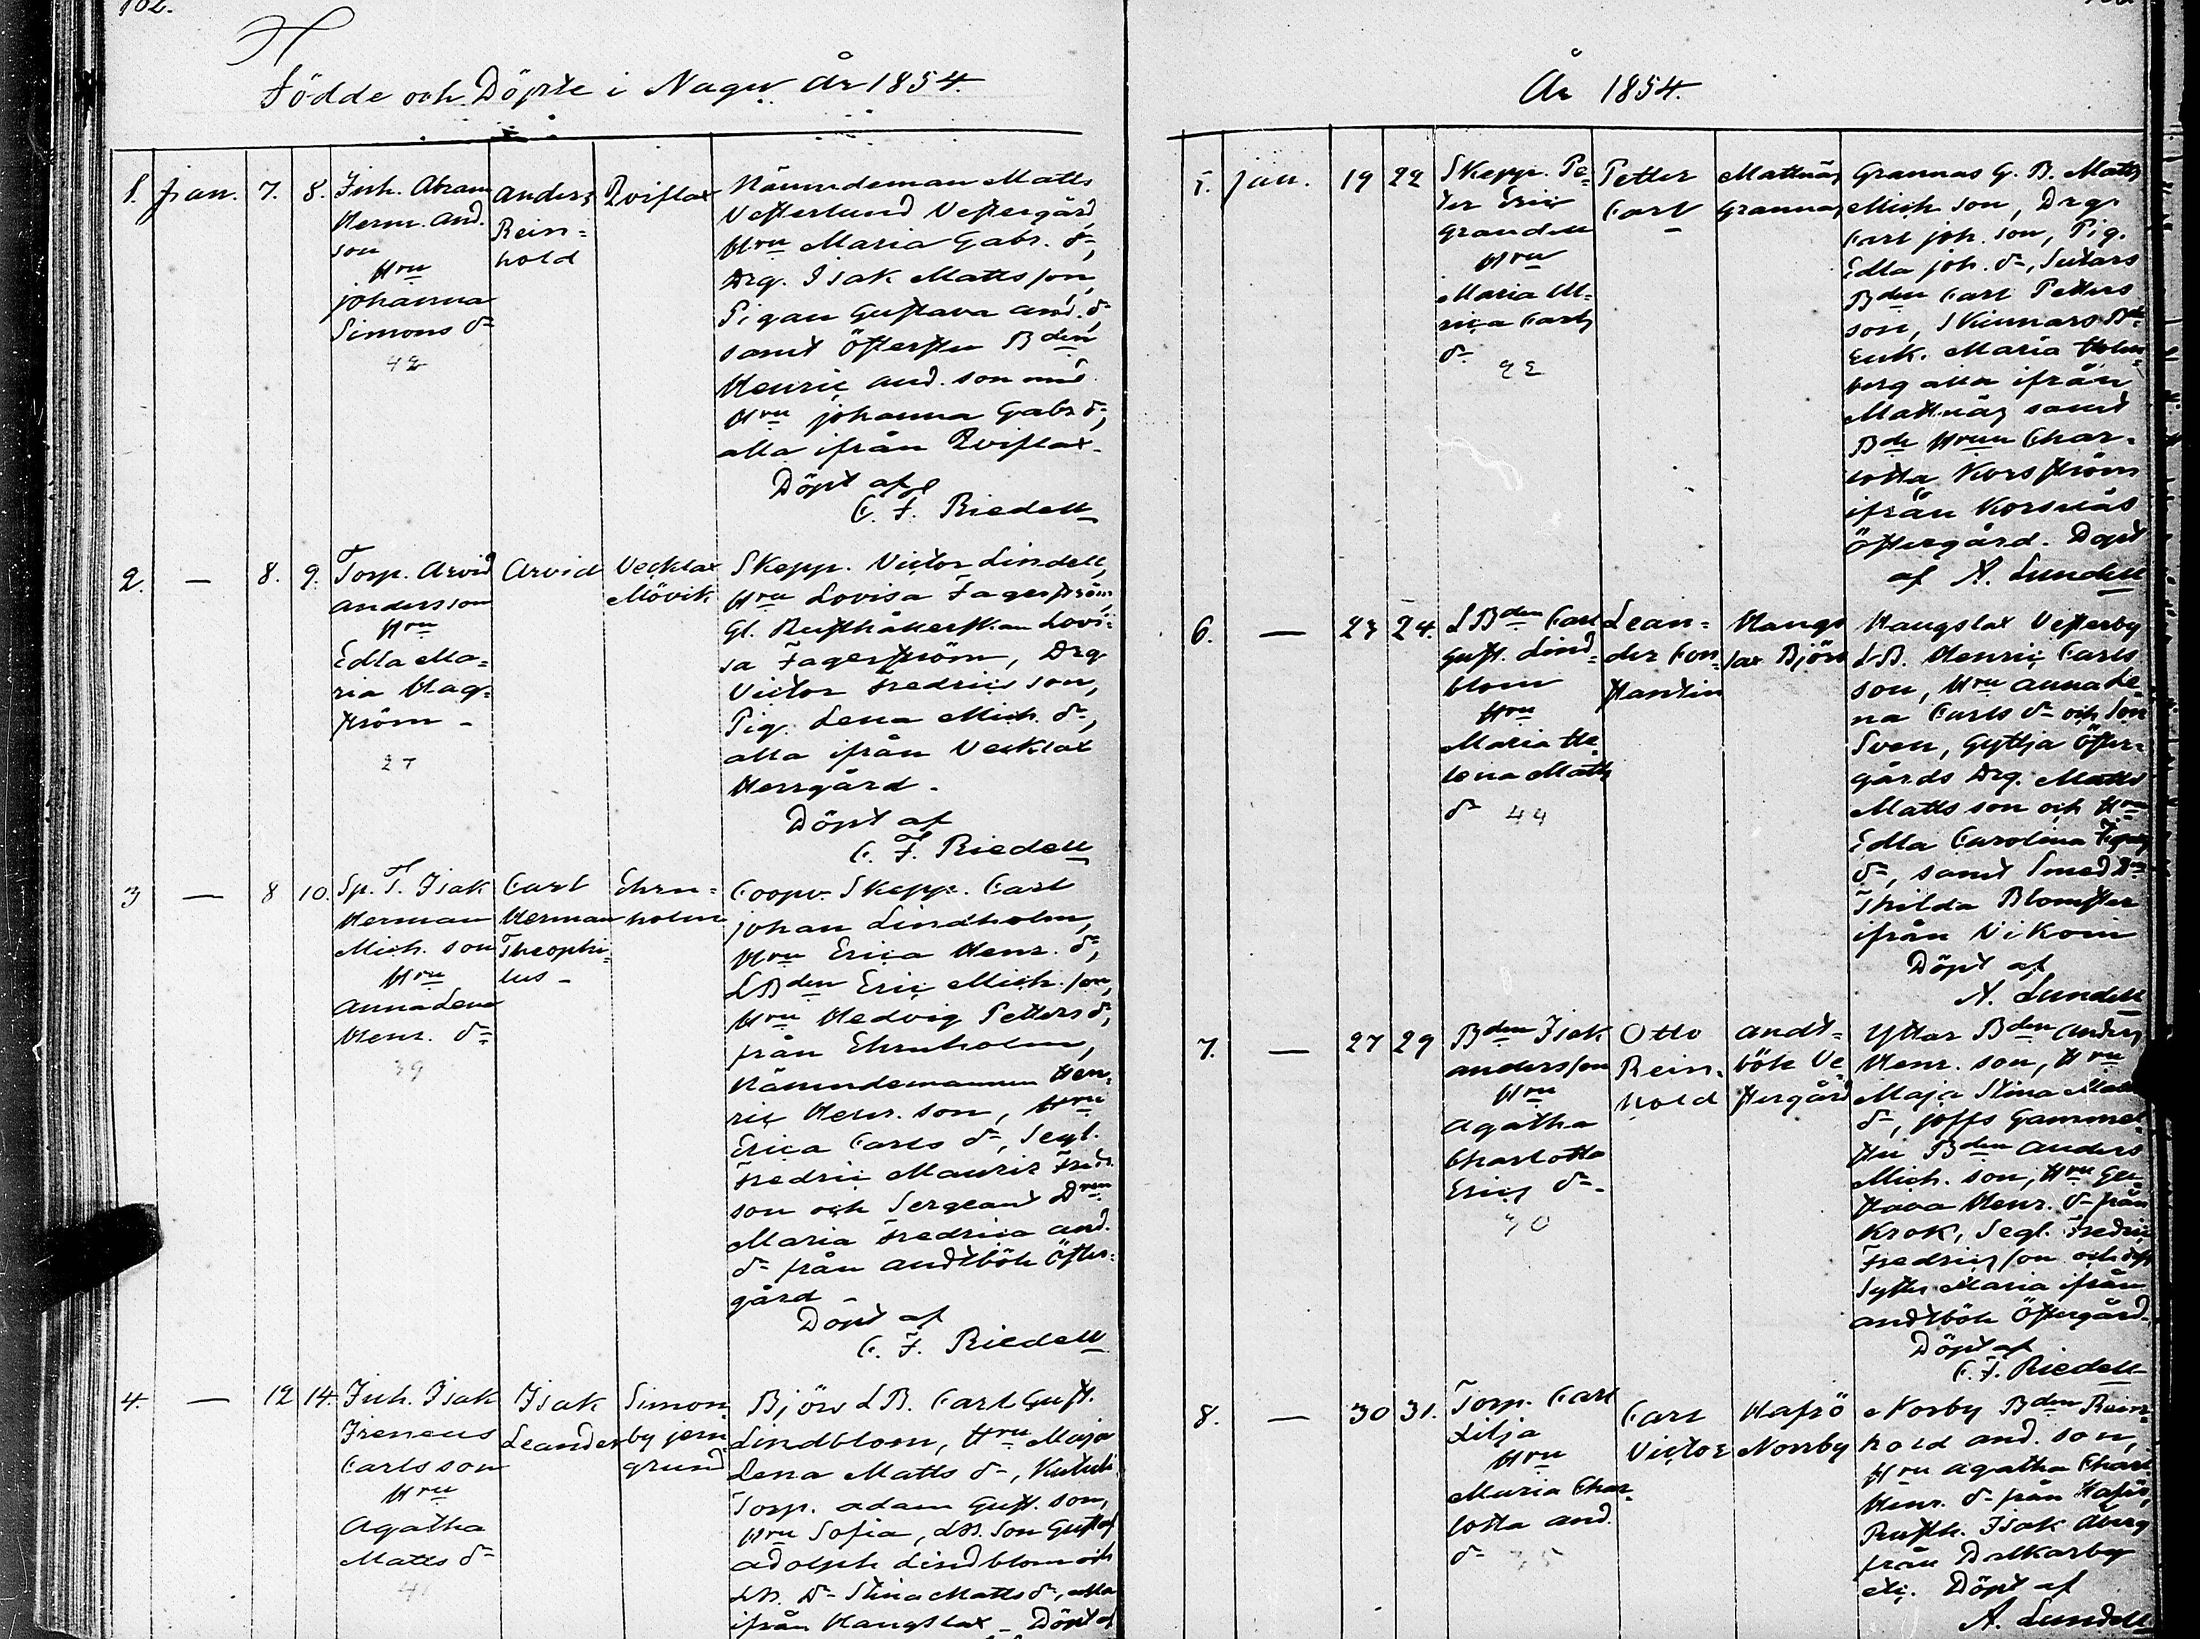 102.
Födde och Döpte i Nagu år 1854.
1. Jan. 7. 8.
Inh. Abram
Herm. And.
son
Hru
Johanna
Simons dr
42
Anders
Rein=
hold
Qviflax
Nämndeman Matts
Vesterlund Vestergård,
Hru Maria Gabr. dr,
Drg. Isak Mattsson,
Pigan Gustava And. dr
samt Östersten Bden
Henric And. son med
Hru Johanna Gabr dr,
alla ifrån Qviflax.
Döpt af
C. F. Riedell
2. — 8. 9.
Torp. Arvid
Andersson
Hru
Edla Ma=
ria Hag=
ström -
27
Arvid
Vecklax
Mövik
Skepp. Victor Lindell,
Hru Lovisa Fagerström,
Gl. Rusthållerskan Lovi=
sa Fagerström, Drg
Victor Fredrics son,
Pig. Lena Mich. dr,
alla ifrån Vecklax
Herrgård.
Döpt af
C. F. Riedell
3 — 8 10.
Sp. T. Isak
Herman
Mich. son
Hru
Anna Lena
Henr. dr
39
Carl
Herman
Theophi=
lus -
Ehrn=
holm
Coopv. Skepp. Carl
Johan Lindholm,
Hru Erica Henr. dr,
LBden Eric Mich. son,
Hru Hedvig Petters dr,
från Ehrnholm,
Nämndemannen Hen=
ric Henr. son, Hru
Erica Carls dr, Segl.
Fredric Mauriz Fredr.
son och Sergeant Dren
Maria Fredrica And.
dr från Andtböle Öster=
gård -
Döpt af
C. F. Riedell
4. — 12 14.
Inh. Isak
Ireneus
Carlsson
Hru
Agatha
Matts dr
41
Isak
Leander
Simon
by jern
grund
Björs LB. Carl Gust.
Lindblom, Hru Maja
Lena Matts dr,
Torp. Adam Gust. son,
Hru Sofia, LB. son Gustaf
Adolph Lindblom och
LB. Dr Stina Matts dr, alla
ifrån Haugslax - Döpt af
År 1854.
5. Jan. 19 22
Skepp. Pe=
ter Eric
Grandell
Hru
Maria Ul=
rica Carls
dr
Petter
Carl
Mattnäs
Grannas
Grannas G. B. Matts
Mich son, Drg.
Carl Joh. son, Pig.
Edla Joh. dr, Sutars
Bden Carl Petters
son, Skinnars
Enk. Maria Holm=
berg alla ifrån
Mattnäs samt
Bde Hrun Char=
lotta Korsström
ifrån Korsnäs
Östergård. Döpt
af A. Lundell
6. — 23 24.
LBden Carl
Gust. Lind=
blom
Hru
Maria He
lena Matts
dr 44
Lean=
der Con=
stantin
Haugs
lax Björs
Haugslax Vesterby
LB. Henric Carls
son, Hru Anna Le=
na Carls dr och Son
Sven, Gyttja Öster=
gårds Drg. Matts
Matts son och Hru
Edla Carolina
dr, samt Smed Dr
Thilda Blomster
ifrån Vikom
Döpt af
A. Lundell
7. — 27 29
Bden Isak
Andersson
Hru
Agatha
Charlotta
Erics dr.
30
Otto
Rein=
hold
Andt=
böle Ve
stergård
Yttar Bden Anders
Henr. son, Hru
Maja Stina
dr, Joffs Gammel
Bden Anders
Mich. son, Hru Gu=
stava Henr. dr från
Krok, Segl. Fredric
Fredricsson och dess
Syster Maria ifrån
Andtböle Östergård.
Döpt af
C. F. Riedell
8. — 30 31.
Torp. Carl
Lilja
Hru
Maria Char=
lotta And.
dr 35
Carl
Victor
Hafsö
Norrby
Norby Bden Rein=
hold And. son,
Hru Agatha Charl
Henr. dr från Hafsö,
Rusth. Isak Åberg
från Dalkarby
etc. Döpt af
A. Lundell